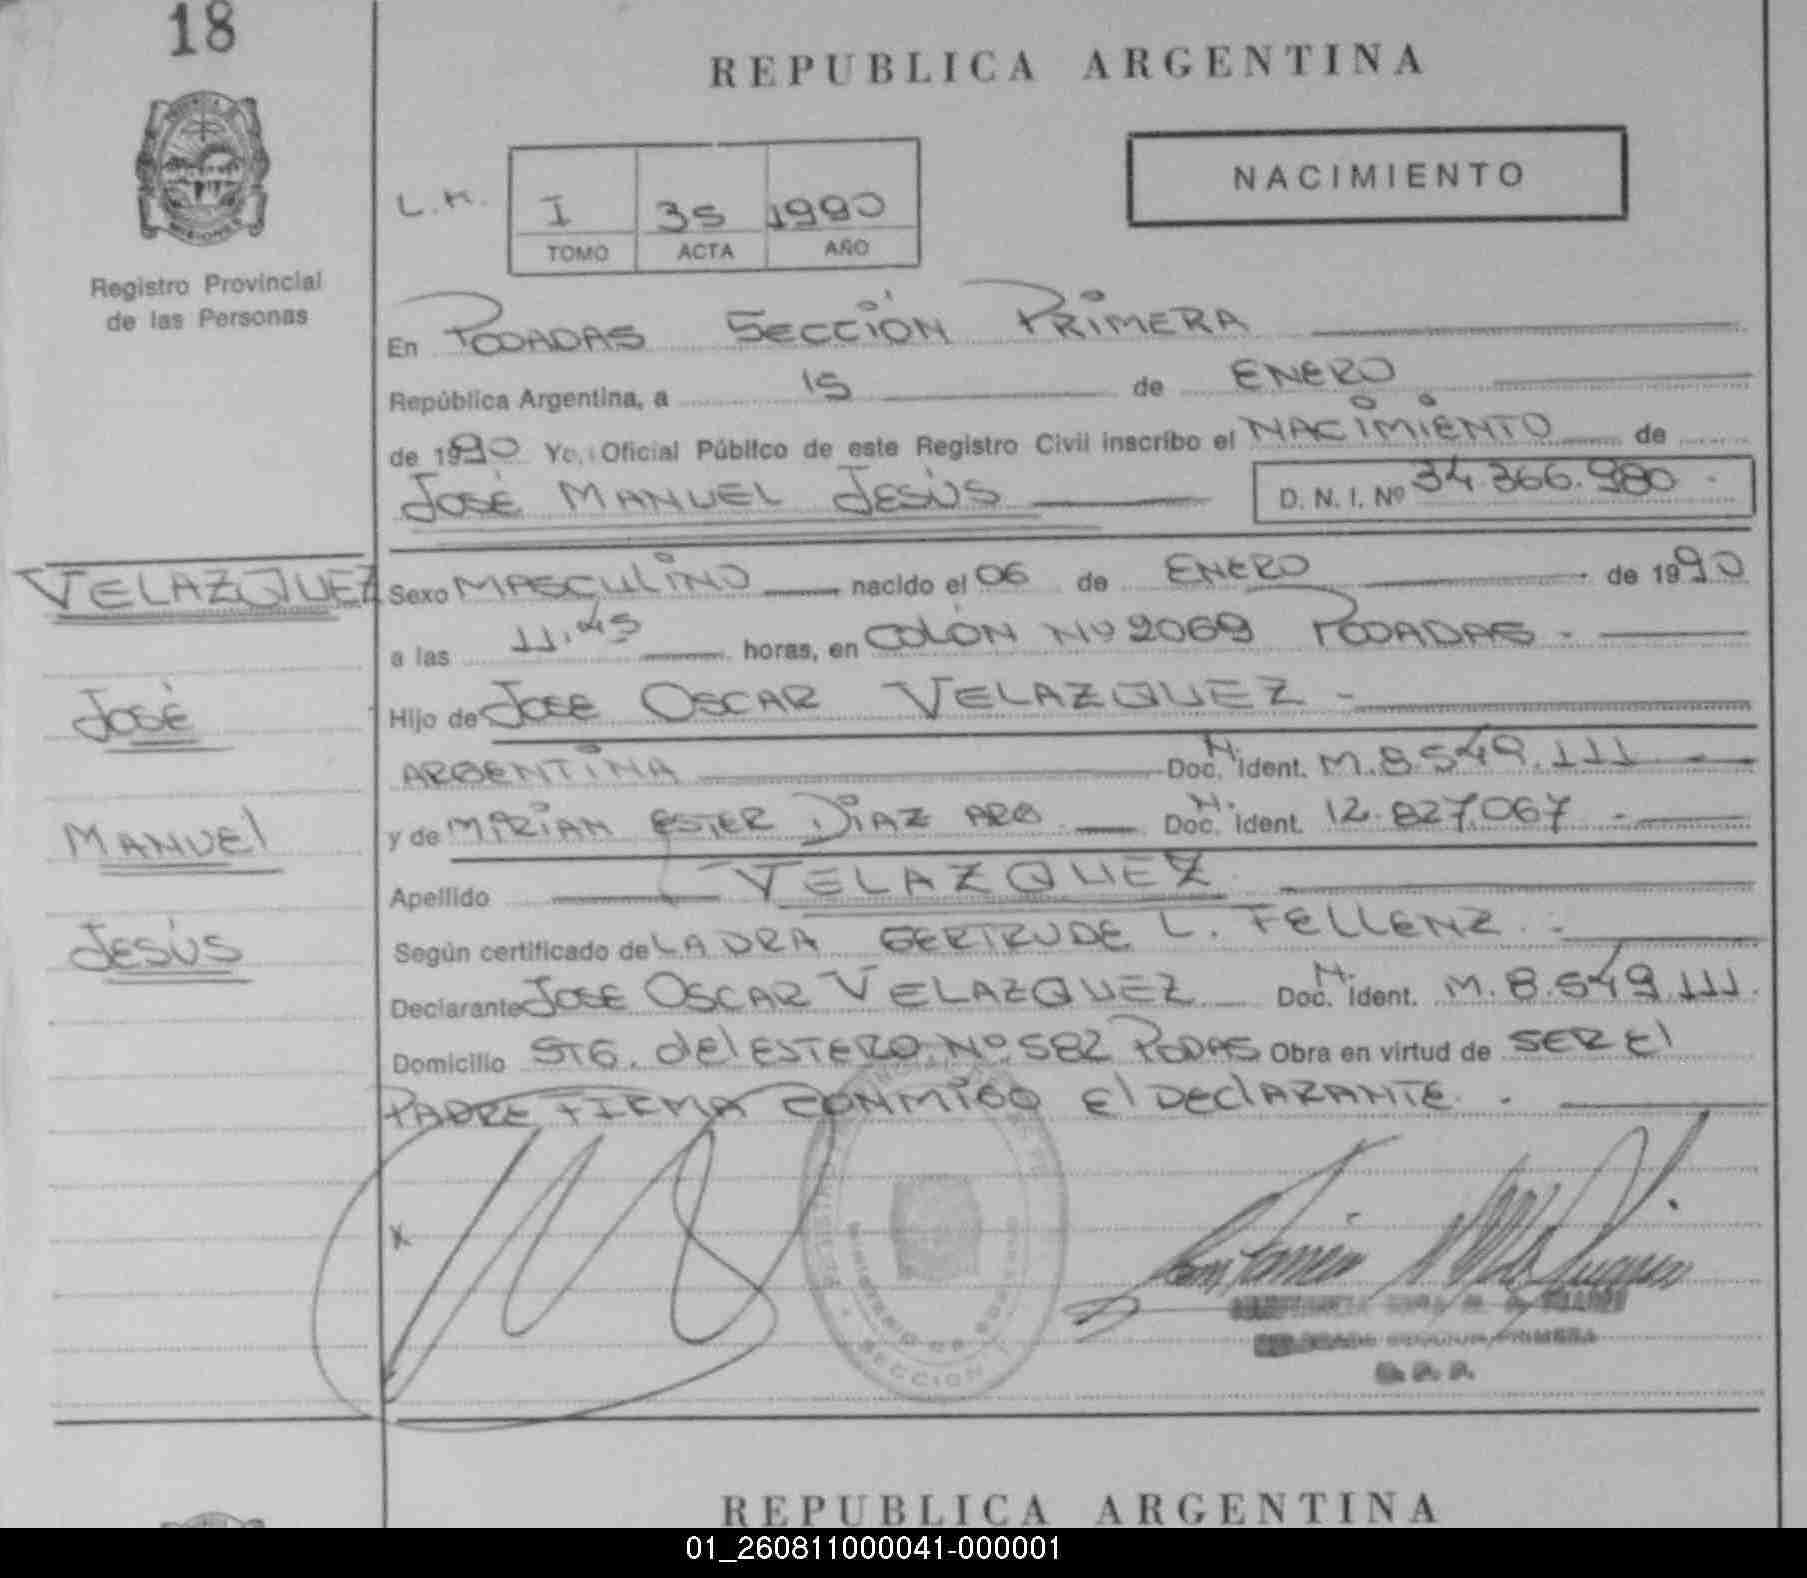 18
REPUBLICA ARGENTINA
NACIMIENTO
L.M.
I 35 1990
TOMO ACTA AÑO
Registro Provincial
de las Personas
En POSADAS SECCIÓN PRIMERA
República Argentina, a 15 de ENERO
de 1990 Yo, Oficial Público de este Registro Civil inscribo el NACIMIENTO de
JOSÉ MANUEL JESÚS D. N. I. Nº 34.366.980 -
VELAZQUEZ
Sexo MASCULINO nacido el 06 de ENERO de 1990
a las 11.45 horas, en COLÓN Nº 2069 POSADAS -
JOSÉ
Hijo de JOSE OSCAR VELAZQUEZ -
ARGENTINA Doc. N. ident. M.8.549.111
MANUEL
y de MIRIAN ESTER DIAZ ARG Doc. N. ident. 12.827.067 -
Apellido VELAZQUEZ
JESÚS
Según certificado de LA DRA GERTRUDE L. FELLENZ . -
Declarante JOSE OSCAR VELAZQUEZ Doc. N. ident. M. 8.549.111.
Domicilio STG. del ESTERO Nº 582 PODAS Obra en virtud de SER El
PADRE FIRMA CONMIGO El DEClARANTE . -
x
MINISTERIO DE GOBIERNO
SECCION 1
REPUBLICA ARGENTINA
01_260811000041-000001